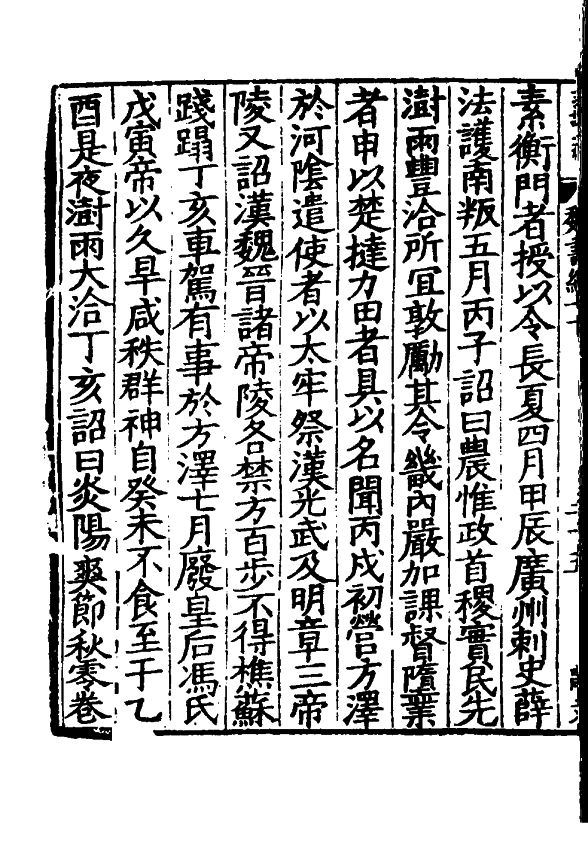 素衡門者授以令長夏四月甲辰廣州刺史薛
法護南叛五月丙子詔曰農惟政首稷實民先
澍雨豐洽所宜敦勵其令畿內嚴加課督隋業
者申以楚撻力田者具以名聞丙戌初營方澤
於河陰遣使者以太牢祭漢光武及明章三帝
陵又詔漢魏晉諸帝陵各禁方百步不得樵蘇
踐蹋丁亥車駕有事於方澤七月廢皇后馮氏
戊寅帝以久旱咸秩群神自癸未不食至于乙
酉是夜澍雨大洽丁亥詔曰炎陽爽節秋零卷